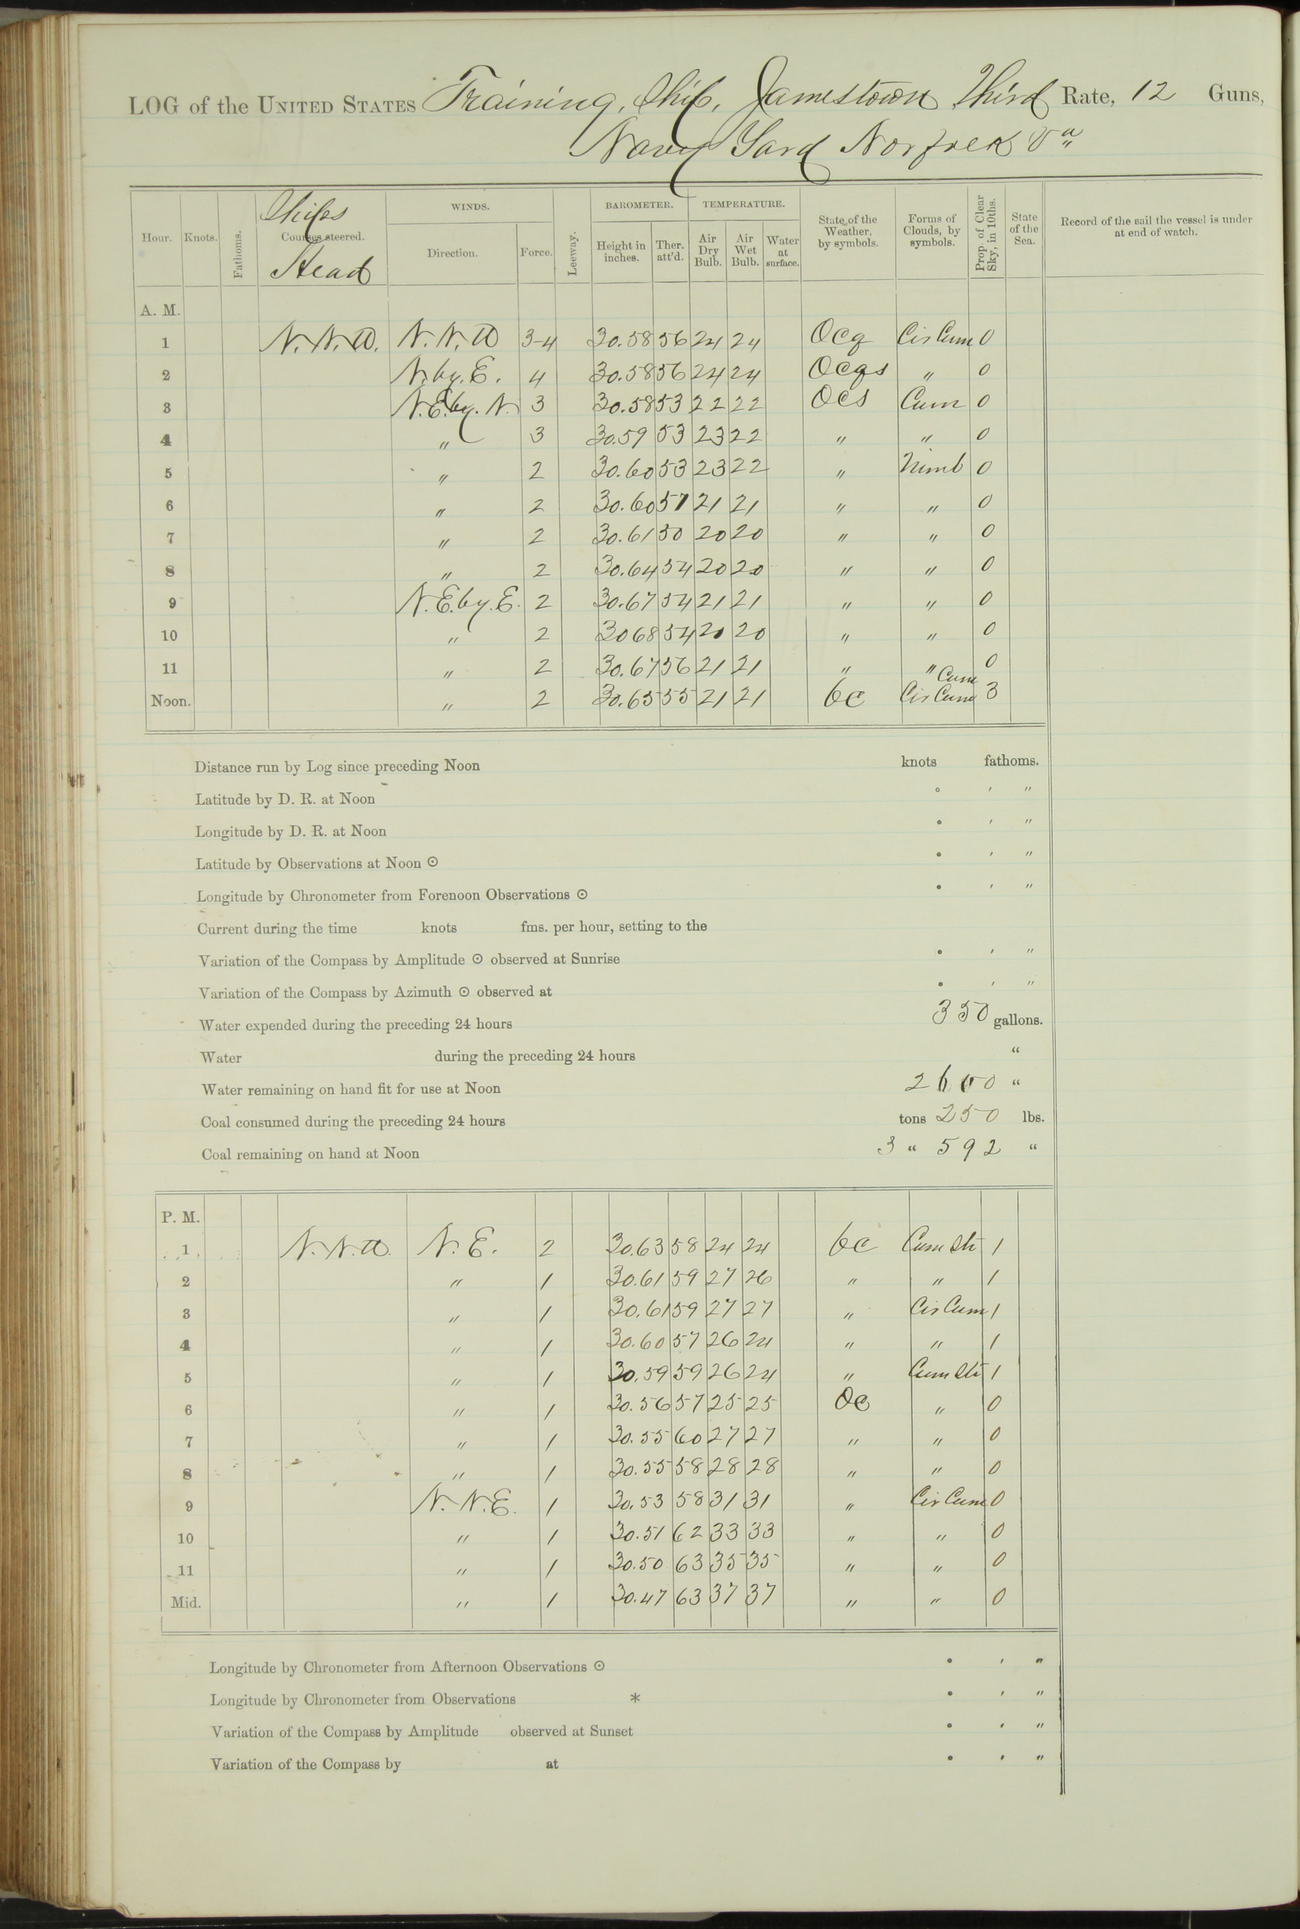 LOG of the UNITED STATES Training Ship, Jamestown, Third Rate, 12 Guns,
Navy Yard Norfolk Va
Hour. Knots. Fathoms. Ships Courses steered. Head WINDS. Direction. Force. Leeway. BAROMETER. Height in inches. Ther. att'd. TEMPERATURE. Air Dry Bulb. Air Wet Bulb. Water at surface. State of the Weather, by symbols. Forms of Clouds, by symbols. Prop. of Clear Sky, in 10ths. State of the Sea. Record of the sail the vessel is under at end of watch.
A. M.
1 N.N.W. N.N.W 3-4 30.58 56 24 24 Ocq Cir Cum 0
2 N. by. E. 4 30.58 56 24 24 Ocqs " 0
3 N.E. by. N. 3 30.58 53 22 22 Ocs Cum 0
4 " 3 30.59 53 23 22 " " 0
5 " 2 30.60 53 23 22 " Nimb 0
6 " 2 30.60 51 21 21 " " 0
7 " 2 30.61 50 20 20 " " 0
8 " 2 30.64 54 20 20 " " 0
9 N.E. by. E. 2 30.67 54 21 21 " " 0
10 " 2 30 68 54 20 20 " " 0
11 " 2 30.67 56 21 21 " " 0
Noon. " 2 30.65 55 21 21 bc Cum Cir Cum 3
Distance run by Log since preceding Noon knots fathoms.
Latitude by D. R. at Noon ° ′ ″
Longitude by D. R. at Noon ° ′ ″
Latitude by Observations at Noon ⊙ ° ′ ″
Longitude by Chronometer from Forenoon Observations ⊙ ° ′ ″
Current during the time knots fms. per hour, setting to the
Variation of the Compass by Amplitude ⊙ observed at Sunrise ° ′ ″
Variation of the Compass by Azimuth ⊙ observed at ° ′ ″
Water expended during the preceding 24 hours 350 gallons.
Water during the preceding 24 hours "
Water remaining on hand fit for use at Noon 2600 "
Coal consumed during the preceding 24 hours tons 250 lbs.
Coal remaining on hand at Noon 3 " 592 "
P. M.
1 N.N.W. N.E. 2 30.63 58 24 24 bc Cum Str 1
2 " 1 30.61 59 27 26 " " 1
3 " 1 30.61 59 27 27 " Cir Cum 1
4 " 1 30.60 57 26 24 " " 1
5 " 1 30.59 59 26 24 " Cum Str 1
6 " 1 30.56 57 25 25 Oc " 0
7 " 1 30.55 60 27 27 " " 0
8 " 1 30.55 58 28 28 " " 0
9 N.N.E. 1 30.53 58 31 31 " Cir Cum 0
10 " 1 30.51 62 33 33 " " 0
11 " 1 30.50 63 35 35 " " 0
Mid. " 1 30.47 63 37 37 " " 0
Longitude by Chronometer from Afternoon Observations ⊙ ° ′ ″
Longitude by Chronometer from Observations * ° ′ ″
Variation of the Compass by Amplitude observed at Sunset ° ′ ″
Variation of the Compass by at ° ′ ″